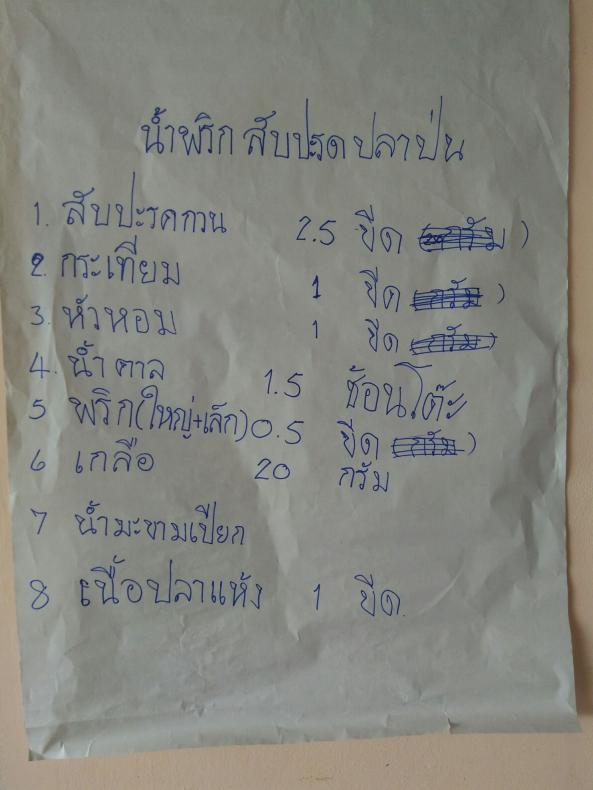 น้ำพริกสับปะรดปลาป่น
1. สับปะรดกวน 2.5 ขีด )
2. กระเทียม 1 ขีด )
3. หัวหอม 1 ขีด
4. น้ำตาล 1.5 ช้อนโต๊ะ
5 พริก(ใหญ่+เล็ก) 0.5 ขีด )
6 เกลือ 20 กรัม
7 น้ำมะขามเปียก
8 เนื้อปลาแห้ง 1 ขีด.